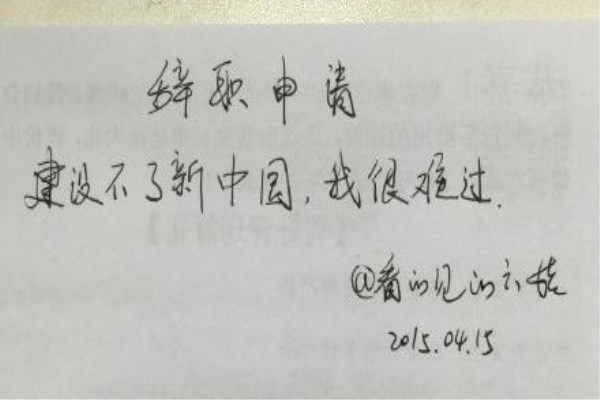 辞职申请
建设不了新中国，我很难过.
@看的见的六指
2015.04.15